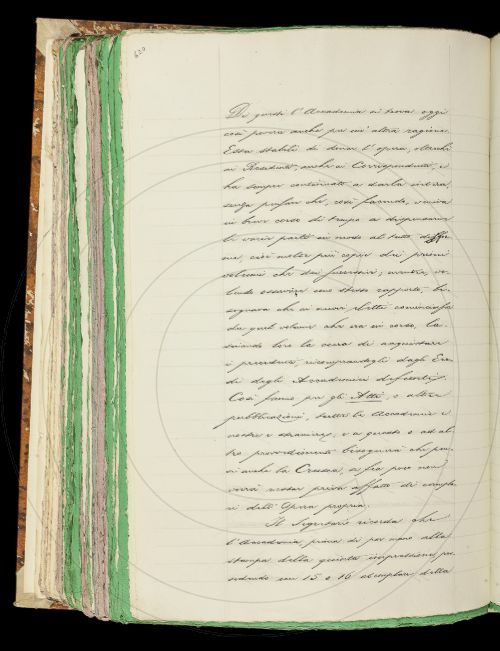 630
Di questi l'Accademia si trova oggi
così povera anche per un'altra ragione.
Essa stabilì di donar l'opera, oltreché
ai Residenti, anche ai Corrispondenti, e
ha sempre continuato a darla intera,
senza pensar che, così facendo, veniva
in breve corso di tempo a
le varie parti in modo al tutto diffor-
me, cioè molte più copie dei primi
volumi che dei susseguenti; mentre, vo-
lendo osservare uno stesso rapporto, bi-
sognava che ai nuovi eletti cominciasse
da quel volume che era in corso, la-
sciando loro la cura di acquistare
i precedenti, ricomprandogli dagli Ere-
di degli Accademici defunti.
Così fanno per gli Atti, e altre
pubblicazioni, tutte le Accademie e
nostre e straniere, e a questo o ad al-
tro provvedimento bisognerà che pen-
si anche la Crusca, se fra poco non
vorrà restar priva affatto di esempla-
ri dell'Opera propria.
Il Segretario ricorda che
l'Accademia, prima di por mano alla
stampa della quinta impressione, pos-
sedendo un 15 o 16 esemplari della